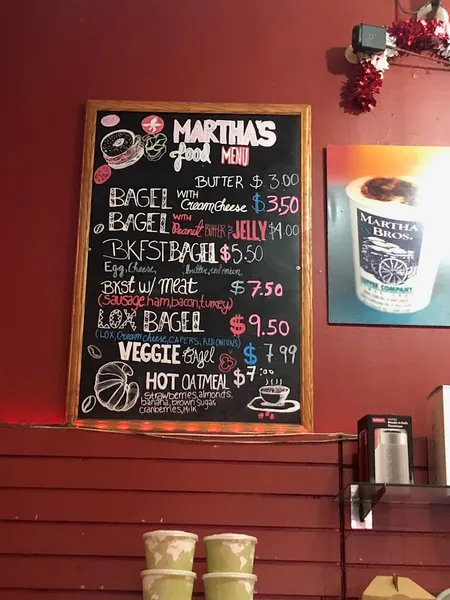 MARTHA'S
food MENU
BUTTER $3.00
BAGEL WITH Cream Cheese $3.50
BAGEL WITH Peanut BUTTER & JELLY $4.00
BKFST BAGEL $6.50
Egg, Cheese, butter, red onion
BKST w/ meat $7.50
(sausage, ham, bacon, turkey)
LOX BAGEL $9.50
(LOX, Cream cheese, CAPERS, RED ONIONS)
VEGGIE Bagel $7.99
HOT OATMEAL $7.00
Strawberries, almonds,
banana, brown sugar
cranberries, Milk
MARTHA
& BROS.
COFFEE COMPANY